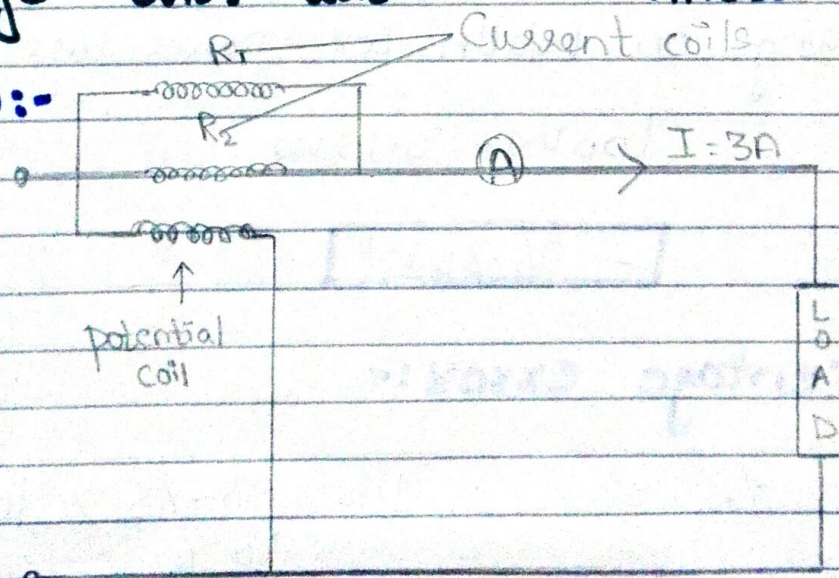 R1
Current coils
:-
R2
A
I = 3A
potential
coil
L
O
A
D